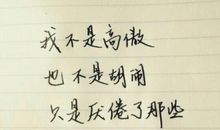 我不是高傲
也不是胡闹
只是厌倦了那些